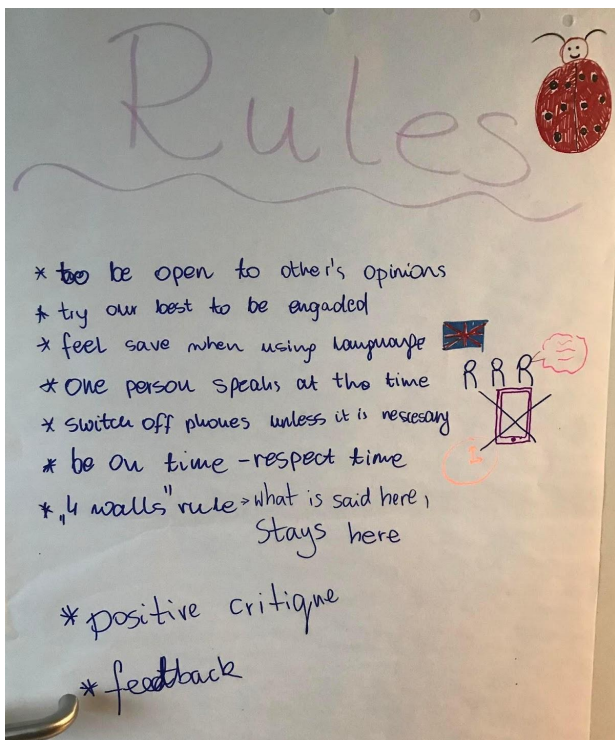 Rules
* be open to other's opinions
* try our best to be engaded
* feel save when using language
* one person speaks at the time
* switch off phones unless it is nescesary
* be on time - respect time
* „4 walls" rule > what is said here,
Stays here
* positive critique
* feedback